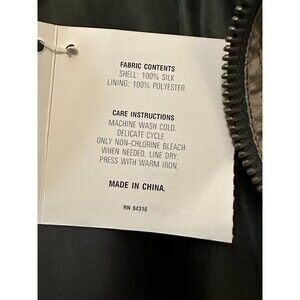 FABRIC CONTENTS
SHELL: 100% SILK
LINING: 100% POLYESTER
CARE INSTRUCTIONS
MACHINE WASH COLD.
DELICATE CYCLE.
ONLY NON-CHLORINE BLEACH
WHEN NEEDED. LINE DRY.
PRESS WITH WARM IRON.
MADE IN CHINA.
RN 84310